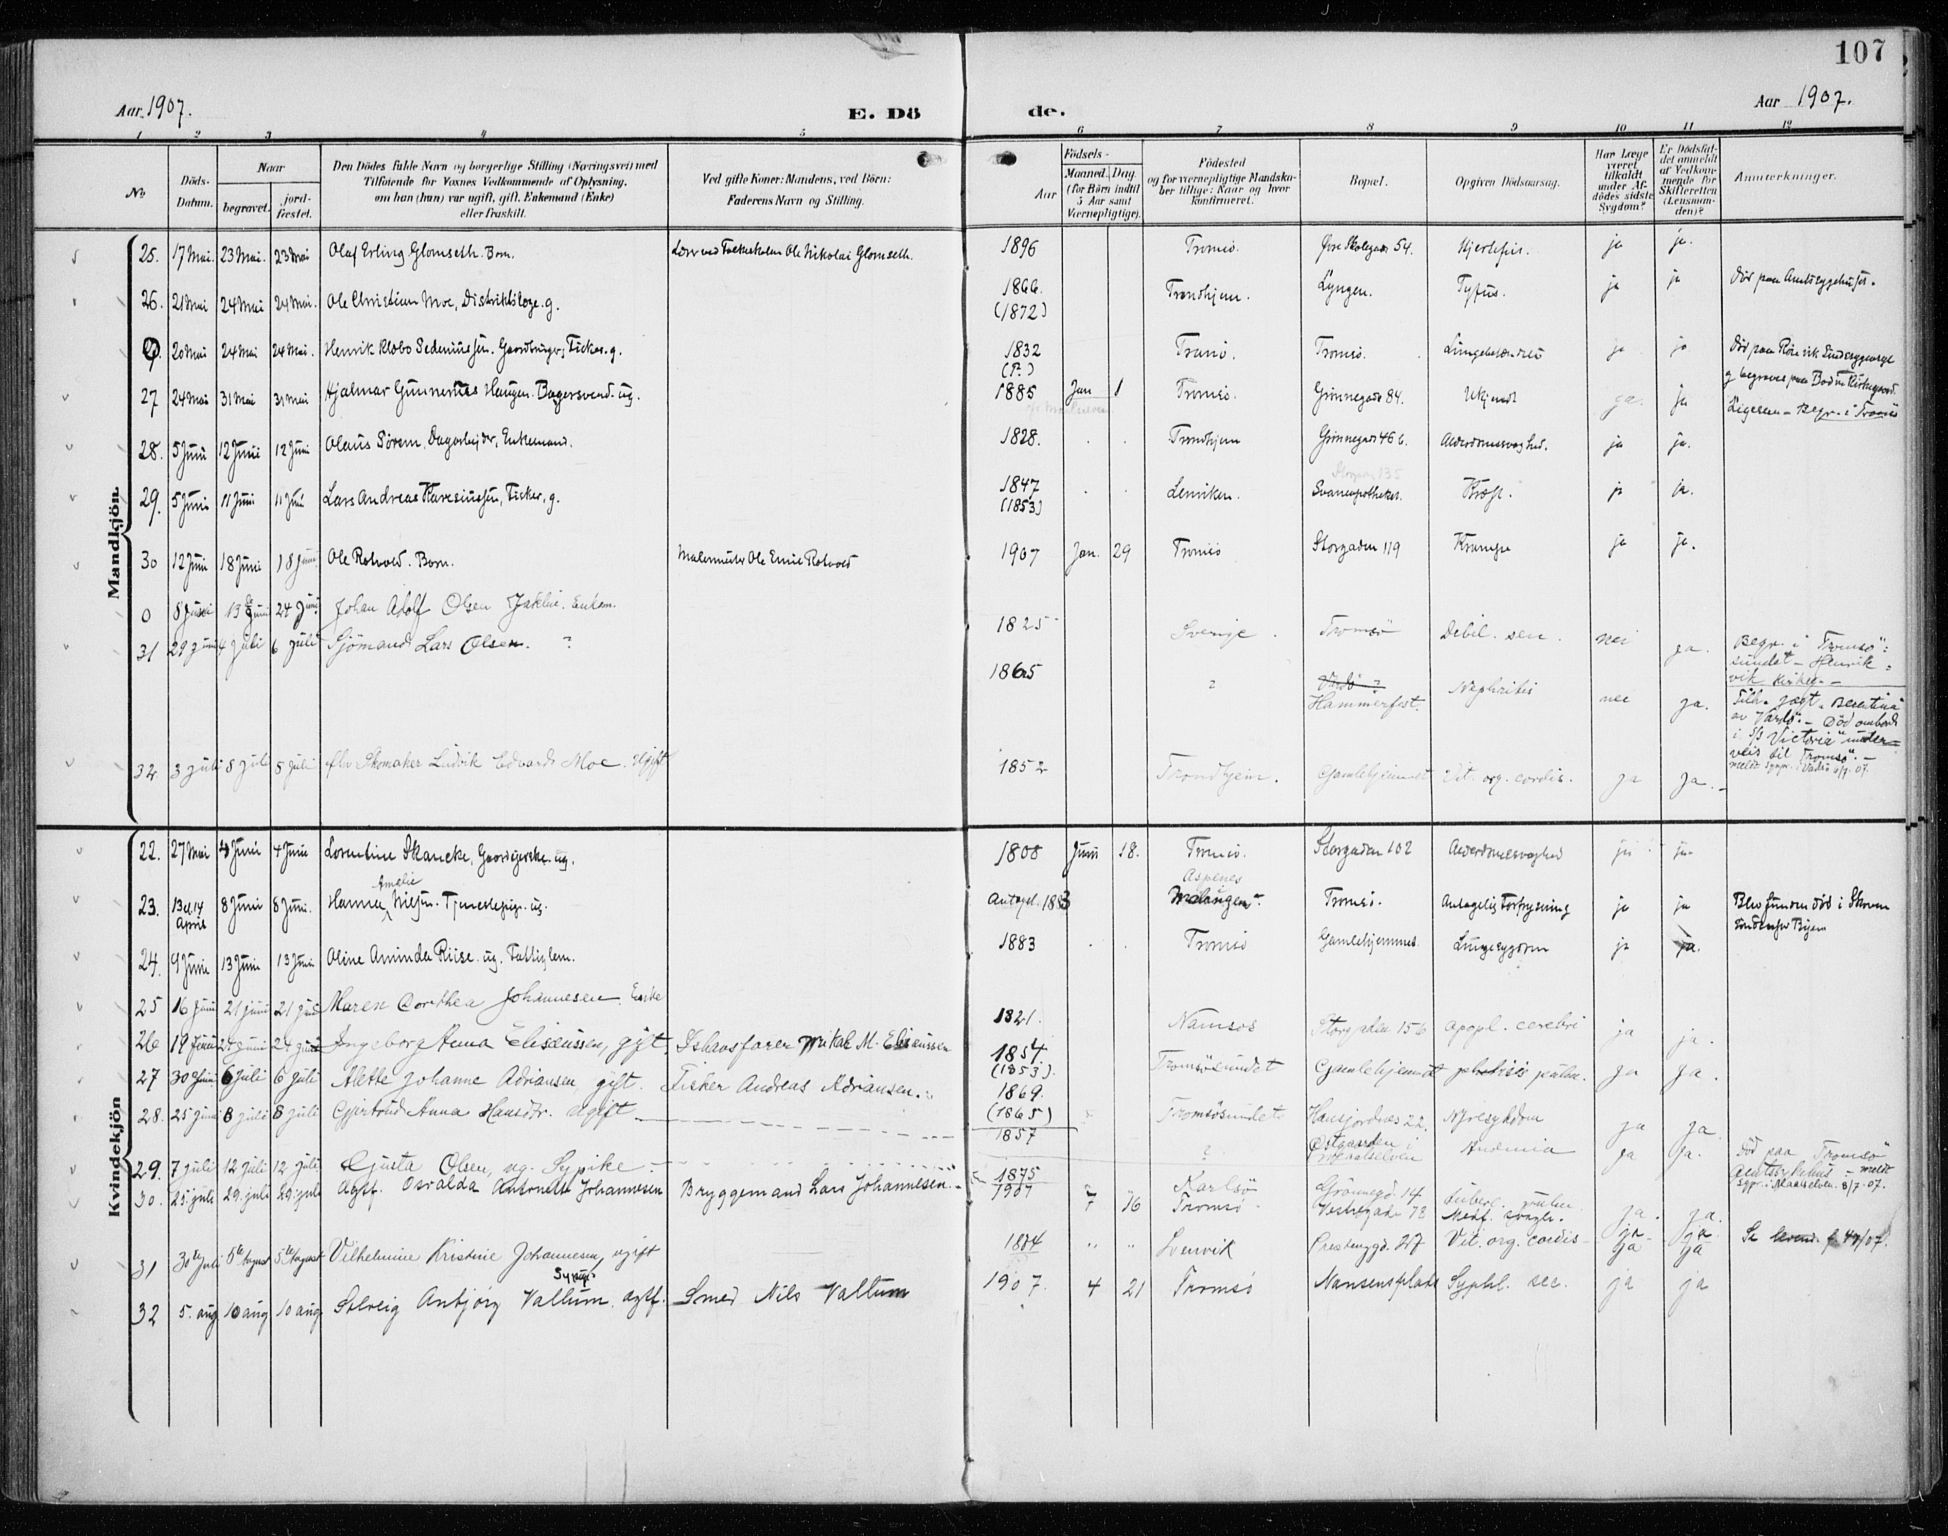 107
Aar 1907. E. Dö de. Aar 1907.
1 2 3 4 5 6 7 8 9 10 11 12
No
Döds-Datum.
Naar
begravet.
jordfæstet.
Den Dödes fulde Navn og borgerlige Stilling (Næringsvei) med
Tilföiende for Voxnes Vedkommende af Oplysning,
om han (hun) var ugift, gift, Enkemand (Enke)
eller fraskilt.
Ved gifte Koner: Mandens, ved Börn:
Faderens Navn og Stilling.
Födsels-
Aar
Maaned. Dag.
(for Börn indtil
5 Aar samt
Værnepligtige).
Födested
og for værnepligtige Mandska-
ber tillige: Naar og hvor
konfirmeret.
Bopæl.
Opgiven Dödsaarsag.
Har Læge
været
tilkaldt
under Af-
dödes sidste
Sygdom?
Er Dödsfal-
det anmeldt
af Vedkom-
mende for
Skifteretten
(Lensman-
den)?
Anmærkninger.
Mandkjön.
25. 17 Mai. 23 Mai. 23 Mai Olaf Erling Glomseth. Barn. Ole Nikolai Glomseth. 1896 Tromsö. 54. Hjertefeil. ja ja.
26. 21 Mai 24 Mai 24 Mai. Ole Christian Moe, Distriktslæge. g. 1866. (1872) Trondhjem. Lyngen. Tyfus. ja ja Död paa Amtssygehuset.
20 Mai 24 Mai 24 Mai. Henrik Klæbo Sedeniussen. Gaardbruger, Fisker. g. 1832 Tranö. Tromsö. ja ja Död paa Rönvik Sindssygeasyl
g begraves paa Bodin Kirkegaard.
27 24 Mai 31 Mai 31 Mai Hjalmar Gunnerius Haugen. Bagersvend. ug. 1885 Jan 1 Tromsö. Grönnegade 84. Ukjendt ja. ja Ligeseen - Begr. i Tromsö
28. 5 Juni 12 Juni 12 Juni Olaus Sörem, Dagarbejder, Enkemand. 1828. Trondhjem Grönnegade 46 b. Alderdomssvaghed. ja ja.
29. 5 Juni 11 Juni 11 Juni Lars Andreas Karesiussen, Fisker, g. 1847 (1853) Lenviken. Storgaden 135 Svaneapotheket. Kræft. ja ja.
30 12 Juni 18 Juni 18 Juni Ole Rotvold. Barn. Malermester Ole Emil Rotvold 1907 Jan. 29 Tromsö Storgaden 119 Krampe ja ja.
0 8 Juni 13 Juni 24 Juni Johan Adolf Olsen Jakke. Enkem. 1825 Sverige. Tromsö Debil. sen. nei ja. Begr. i Tromsö-
sundet - Henrik-
vik kirkeg.
31 29 juni 4 juli 6 juli Sjömand Lars Olsen. ? 1865 ? Vadsö ? Hammerfest. Nephritis nei ja. Tilh. jagt. Berentine
av Vardö. - Död ombord
i S/S Victoria" under-
veis til Tromsö". -
meldt sypr. i Vadsö 6/7. 07.
32 3 juli 8 juli 8 juli Skomaker Ludvik Edvard Moe. Ugift 1852 Trondhjem. Gamlehjemmet Vit. org. cordis. ja ja.
Kvindekjön
22. 27 Mai 4 Juni 4 Juni Lorentine Skancke, Gaardejerske. ug. 1808 Juni 18. Tromsö. Storgaden 102 Alderdomssvaghed ja ja
23. 13 el. 14 April 8 Juni 8 Juni. Hanna Amalie Tjenestepige. ug. Antagel. 1883 Aspenes Malangen. Tromsö. Antagelig Forfrysning ja ja Blev funden död i Skoven
söndenfor Byen
24. 9 Juni 13 Juni 13 Juni Oline Aminda Riise. ug. Fattiglem. 1883 Tromsö Gamlehjemmet. Lungesygdom ja ja.
25 16 Juni 21 juni 21 juni Maren Dorthea Johannesen. Enke 1821. Namsos Storgaden 156 apopl. cerebri ja ja.
26 19 Juni 24 juni 24 juni Ingeborg Anna Eliseussen, gift, Ishavsfarer Mikal M. Eliseussen 1854. (1853). Tromsösundet Gamlehjemmet phthisis pulm. ja ja.
27 30 Juni 6 juli 6 juli Alette Johanne Adriansen, gift. Fisker Andreas Adriansen. 1869. (1865) Tromsösundet Hansjordnes 22. Nyresykdom ja ja.
28. 25 juni 8 juli 8 juli Gjertrud Anna Hansdtr. Ugift 1857 ? Östgaarden i Maalselven Anæmia ja ja. Död paa Tromsö
amtssykehus - meldt
sypr. i Maalselven. 8/7. 07.
29. 7 juli 12 juli 12 juli Gjusta Olsen, ug. Sypike. 1875 Karlsö Grönnegd. 14 Tuberc. pulm. ja. ja.
30. 25 juli 29. juli 29. juli Osvalda Antonette Johannesen Bryggemand Lars Johannesen. 1907 7 16 Tromsö. Vestregade 78 Medf. svagh. ja ja
31 30te juli 5te August 5te August Vilhelmine Kristine Johannesen, ugift Sypige 1884 " " Lenvik Prestengd. 27 Vit. org. cordis ja ja Se
32 5. aug 10 aug 10 aug Solveig Anbjörg Valtum. agtf. Smed Nils Valtum 1907. 4 21 Tromsö Nansensplads Syphl. ser. ja ja